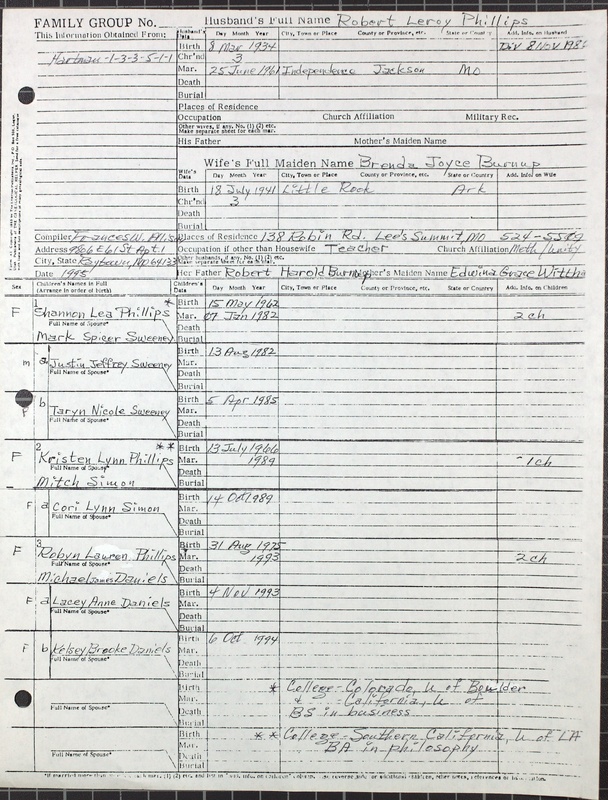 FAMILY GROUP No. Husband's Full Name Robert Leroy Phillips
This Information Obtained From: Husband's Data Day Month Year City, Town or Place County or Province, etc. State or Country Add. Info. on Husband
Hartman-1-3-3-5-1-1
Birth 8 Mar 1934 Div 8 Nov 198
Chr'nd 3
Mar. 25 June 1961 Independence Jackson Mo
Death
Burial
Places of Residence
Occupation Church Affiliation Military Rec.
Other wives, if any. No. (1) (2) etc.
Make separate sheet for each mar.
His Father Mother's Maiden Name
Wife's Full Maiden Name Brenda Joyce Burnup
Wife's Data Day Month Year City, Town or Place County or Province, etc. State or Country Add. Info. on Wife
Birth 18 July 1941 Little Rock Ark
Chr'nd 3
Death
Burial
Compiler Frances W. Places of Residence 138 Robin Rd. Lee's Summit, Mo 524-
Address 9806 E 61 St Apt. 1 Occupation if other than Housewife Teacher Church Affiliation Meth/Unity
City, State Raytown, Mo 64133
Date 1995 Her Father Robert Harold Burnup Mother's Maiden Name Edwina Grace
Sex Children's Names in Full (Arrange in order of birth) Children's Data Day Month Year City, Town or Place County or Province, etc. State or Country Add. Info. on Children
F 1 Shannon Lea Phillips * Birth 15 May 1962
Full Name of Spouse* Mar. 07 Jan 1982 2 ch
Death
Mark Spicer Sweeney Burial
m a Justin Jeffrey Sweeney Birth 13 Aug 1982
Full Name of Spouse* Mar.
Death
Burial
F b Taryn Nicole Sweeney Birth 5 Apr 1985
Full Name of Spouse* Mar.
Death
Burial
F 2 Kristen Lynn Phillips ** Birth 13 July 1966
Full Name of Spouse* Mar. 1989 1 ch
Death
Mitch Simon Burial
F a Cori Lynn Simon Birth 14 Oct 1989
Full Name of Spouse* Mar.
Death
Burial
F 3 Robyn Lauren Phillips Birth 31 Aug 1975
Full Name of Spouse* Mar. 1993 2 ch
Death
Michael James Daniels Burial
F a Lacey Anne Daniels Birth 4 Nov 1993
Full Name of Spouse* Mar.
Death
Burial
F b Kelsey Brooke Daniels Birth 6 Oct 1994
Full Name of Spouse* Mar.
Death
Burial
Birth * College-Colorado, U of Boulder
Full Name of Spouse* Mar. * -California, U of
Death BS in business
Burial
Birth ** College-Southern California, U of LA
Full Name of Spouse* Mar. BA in philosophy
Death
Burial